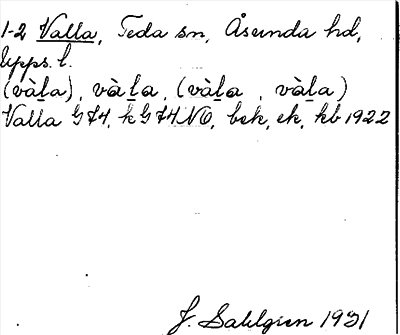 1-2 Valla, Teda sn, Åsunda hd,
Upps. l.
(vàḻa), vàḻa, (vàḻa, vàḻa)
Valla GJ4, k GJ4 NO, bek, ek, kb 1922
J. Sahlgren 1931